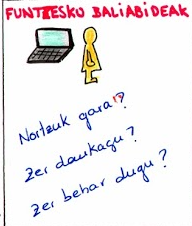 FUNTZESKO BALIABIDEAK
Nortzuk gara?
Zer daukagu?
Zer behar dugu?